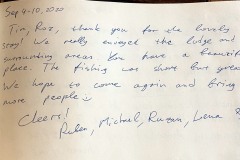 Sep 4-10, 2020
Tim, Roz, thank you for the lovely
stay! We really enjoyed the lodge and
surrounding areas. You have a beautiful
place. The fishing was short but great
We hope to come again and bring
more people
Cheers!
Michael, Lena